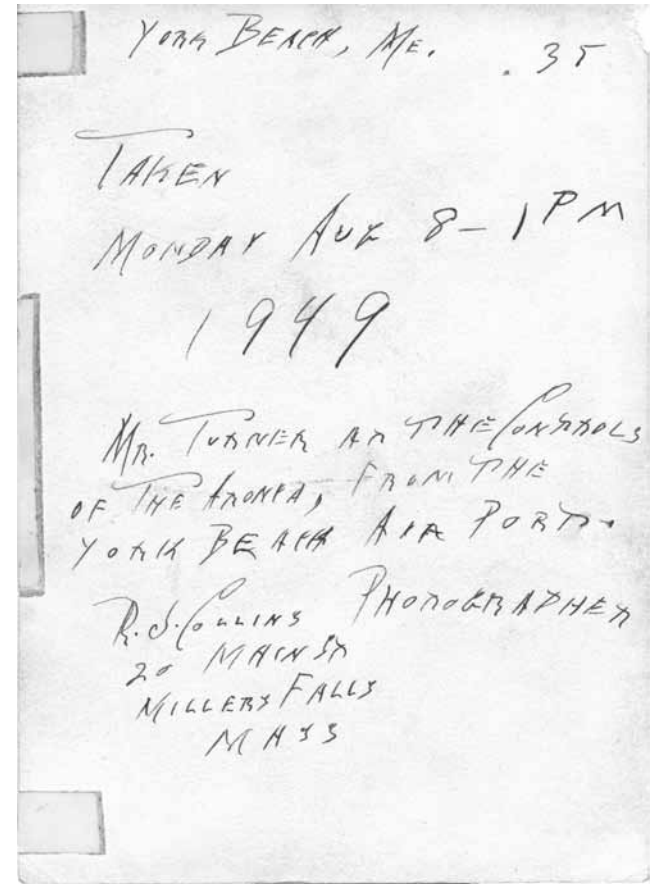 YORK BEACH, ME. .35
TAKEN
MONDAY AUG 8-1PM
1949
MR. TURNER AT THE CONTROLS
OF THE ARONCA, FROM THE
YORK BEACH AIR PORT.
R.J. COLLINS PHOTOGRAPHER
20 MAIN ST
MILLERS FALLS
MASS